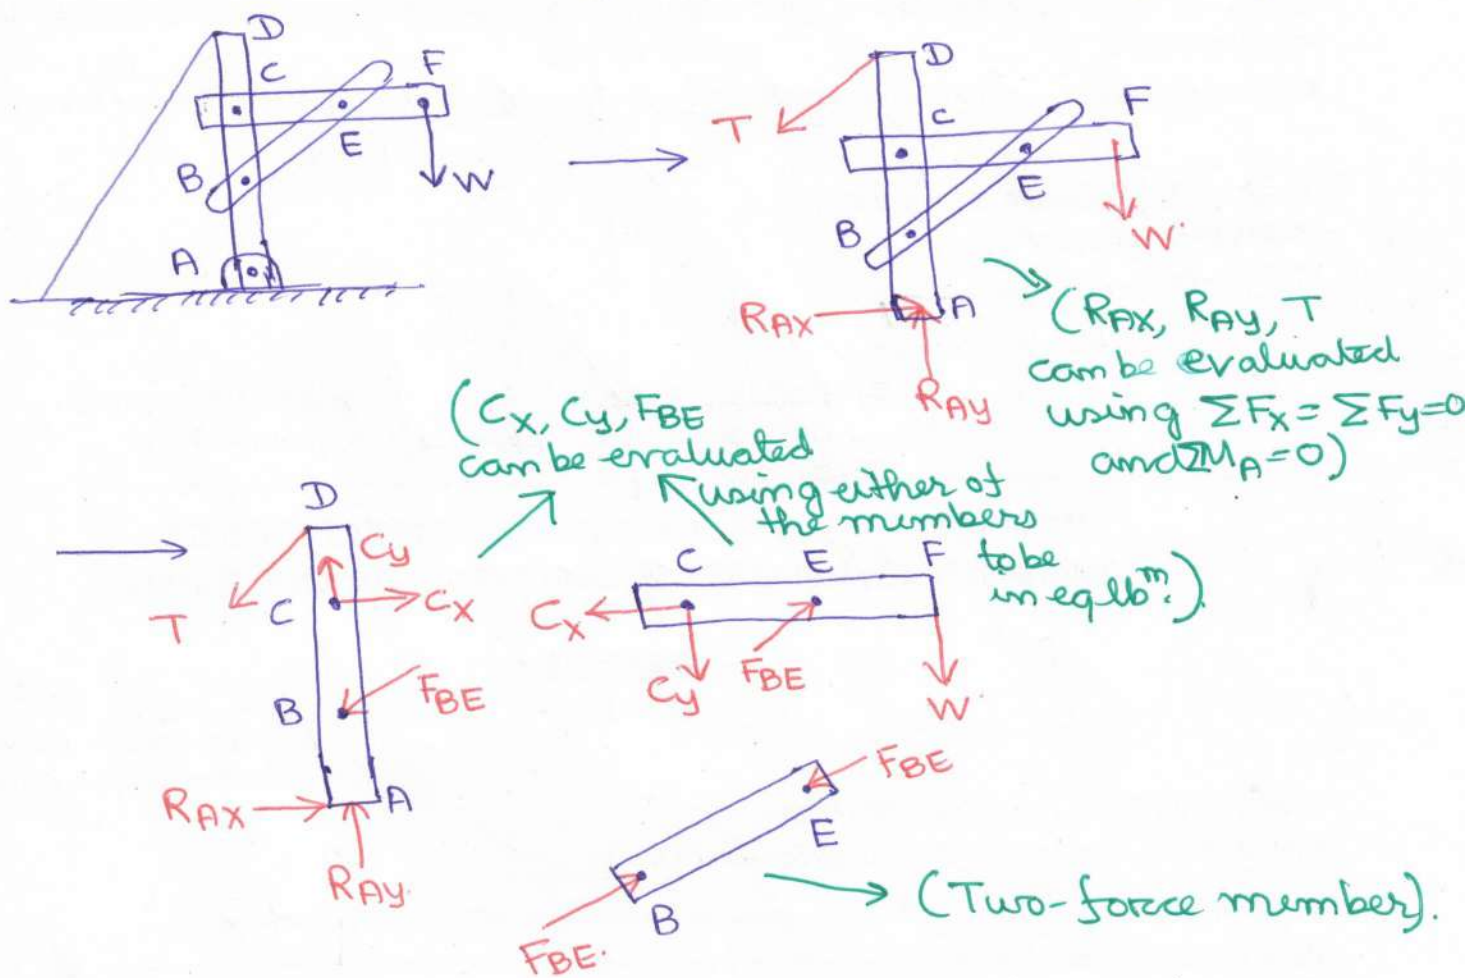 D
C
F
E
B
W
A
D
T
C
F
E
B
W.
RAX
A
RAY
(RAX, RAY, T
can be evaluated
using ΣFx = ΣFy=0
and ΣMA=0)
(Cx, Cy, FBE
can be evaluated
using either of
the members
to be
in eqlbm.).
D
Cy
T
C
Cx
B
FBE
RAX
A
RAY
C
E
F
Cx
Cy
FBE
W
FBE
E
B
FBE.
(Two-force member).